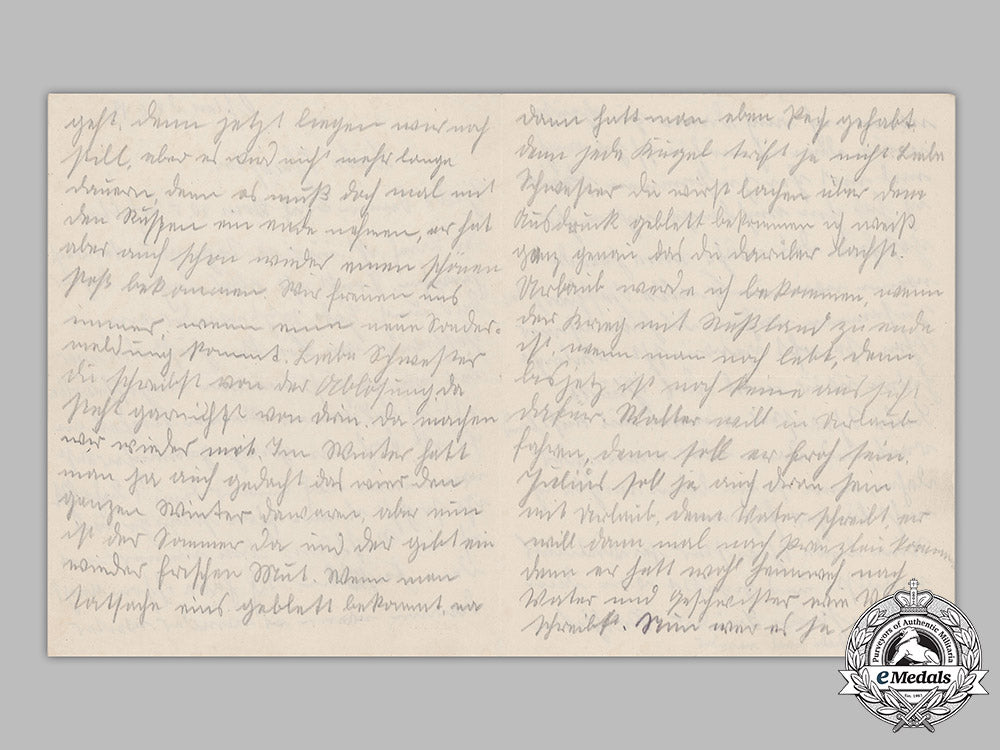 geht, denn jetzt liegen wir noch
still, aber es wird nicht mehr lange
dauern, denn es muß doch mal mit
den Russen ein ende nehmen, er hat
aber auch schon wieder einen schönen
stoß bekommen. Wir freuen uns
immer, wenn eine neue Sonder-
meldung kommt. Liebe Schwester
du schreibst von der Ablösung da
steht garnichts von drin, da machen
wir wieder mit. Im Winter hatt
man ja auch gedacht das wier den
ganzen Winter dawaren, aber nun
ist der Sommer da und der gibt ein
wieder frischen Mut. Wenn man
tatsache eins geblett bekommt, na
dann hatt man eben Pech gehabt
denn jede Kugel trift ja nicht Liebe
Schwester du wirst lachen über dem
Ausdruck geblett bekommen ich weiß
ganz genau das du darüber lachst.
Urlaub werde ich bekommen, wenn
der Krieg mit Rußland zu ende
ist, wenn man noch lebt, denn
bisjetz ist noch keine aussicht
dafür. Walter will in Urlaub
fahren, denn soll er froh sein.
Julius soll ja auch dran sein
mit Urlaub, denn Vater schreibt, er
will dann mal nach Prenzlau kommen
denn er hatt wohl Heimweh nach
Vater und Geschwister wie
schreibst. Nun war es ja
Purveyors of Authentic Militaria
eMedals
Est. 1967